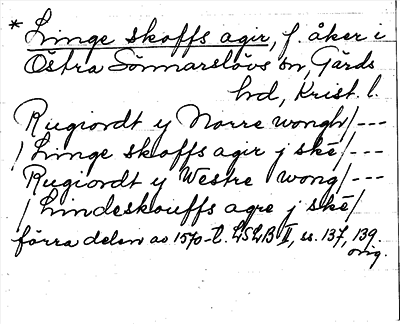 * Linge skoffs agir, f. åker i
Östra Sönnarslövs sn, Gärds
hd, Krist. l.
Rugiordt y Norre wongh/---
/Linge skoffs agir j ske/---
Rugiordt y Westre wong/---
/Lindeskouffs agre j ske/
förra delen av 1570-t. LSLB II, ss. 137, 139.
orig.